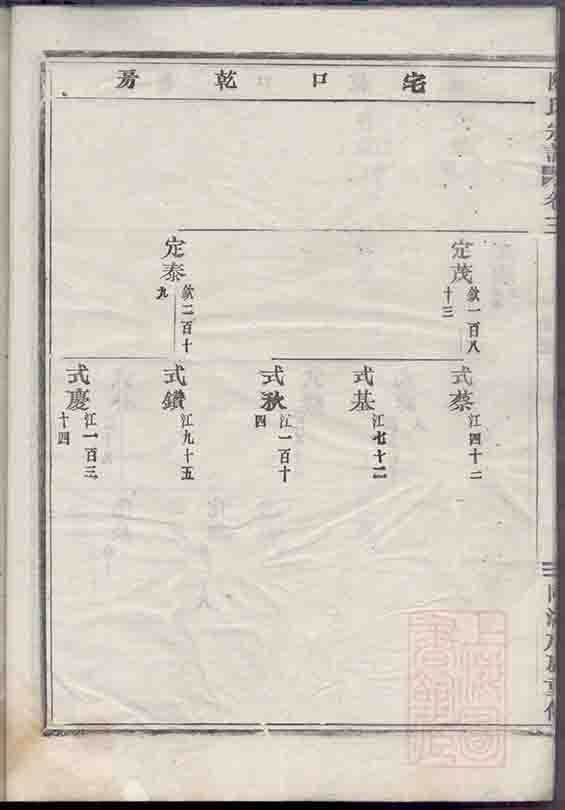 宅口乾房
定茂
欽一百八
十三
式蔡
江四十二
式基
江七十二
式秋
江一百十
四
定泰
欽二百十
九
式鑽
江九十五
式慶
江一百三
十四
上海圖書館藏